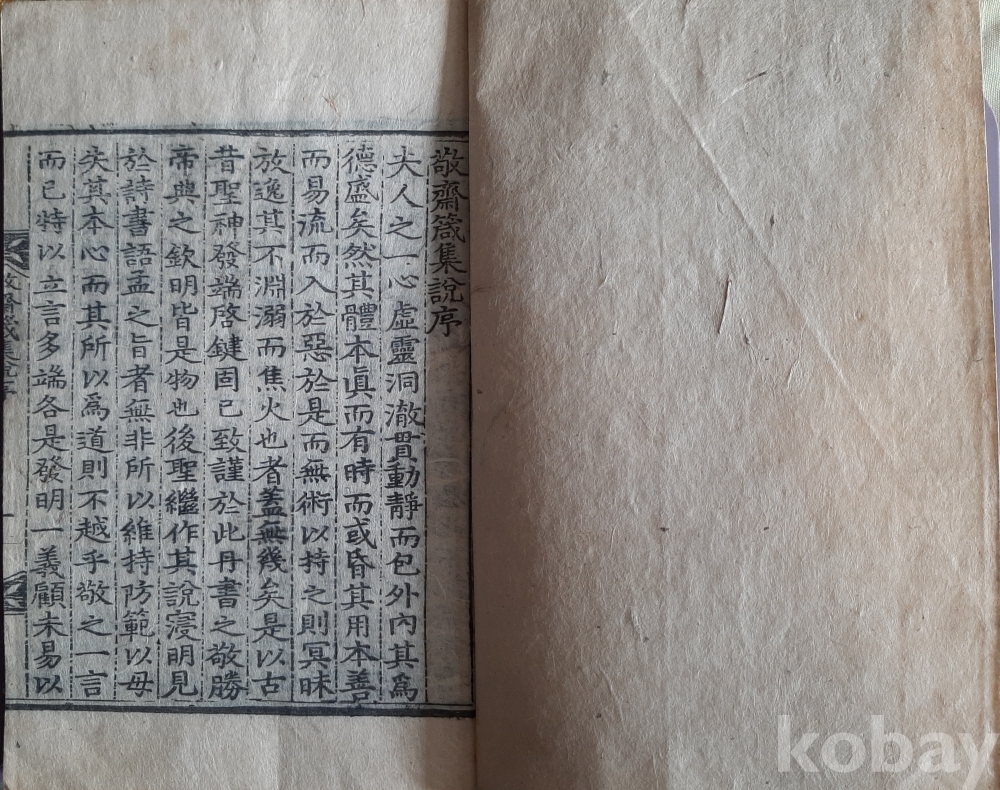 敬齋箴集說序
夫人之一心虛靈洞澈貫動靜而包外內其爲
德盛矣然其體本眞而有時而或昏其用本善
而易流而入於惡於是而無術以持之則冥昧
放逸其不淵溺而焦火也者蓋無幾矣是以古
昔聖神發端啓鍵固已致謹於此丹書之敬勝
帝典之欽明皆是物也後聖繼作其說寖明見
於詩書語孟之旨者無非所以維持防範以毋
失其本心而其所以爲道則不越乎敬之一言
而已特以立言多端各是發明一義顧未易以
敬齋箴集說序
一
kobay